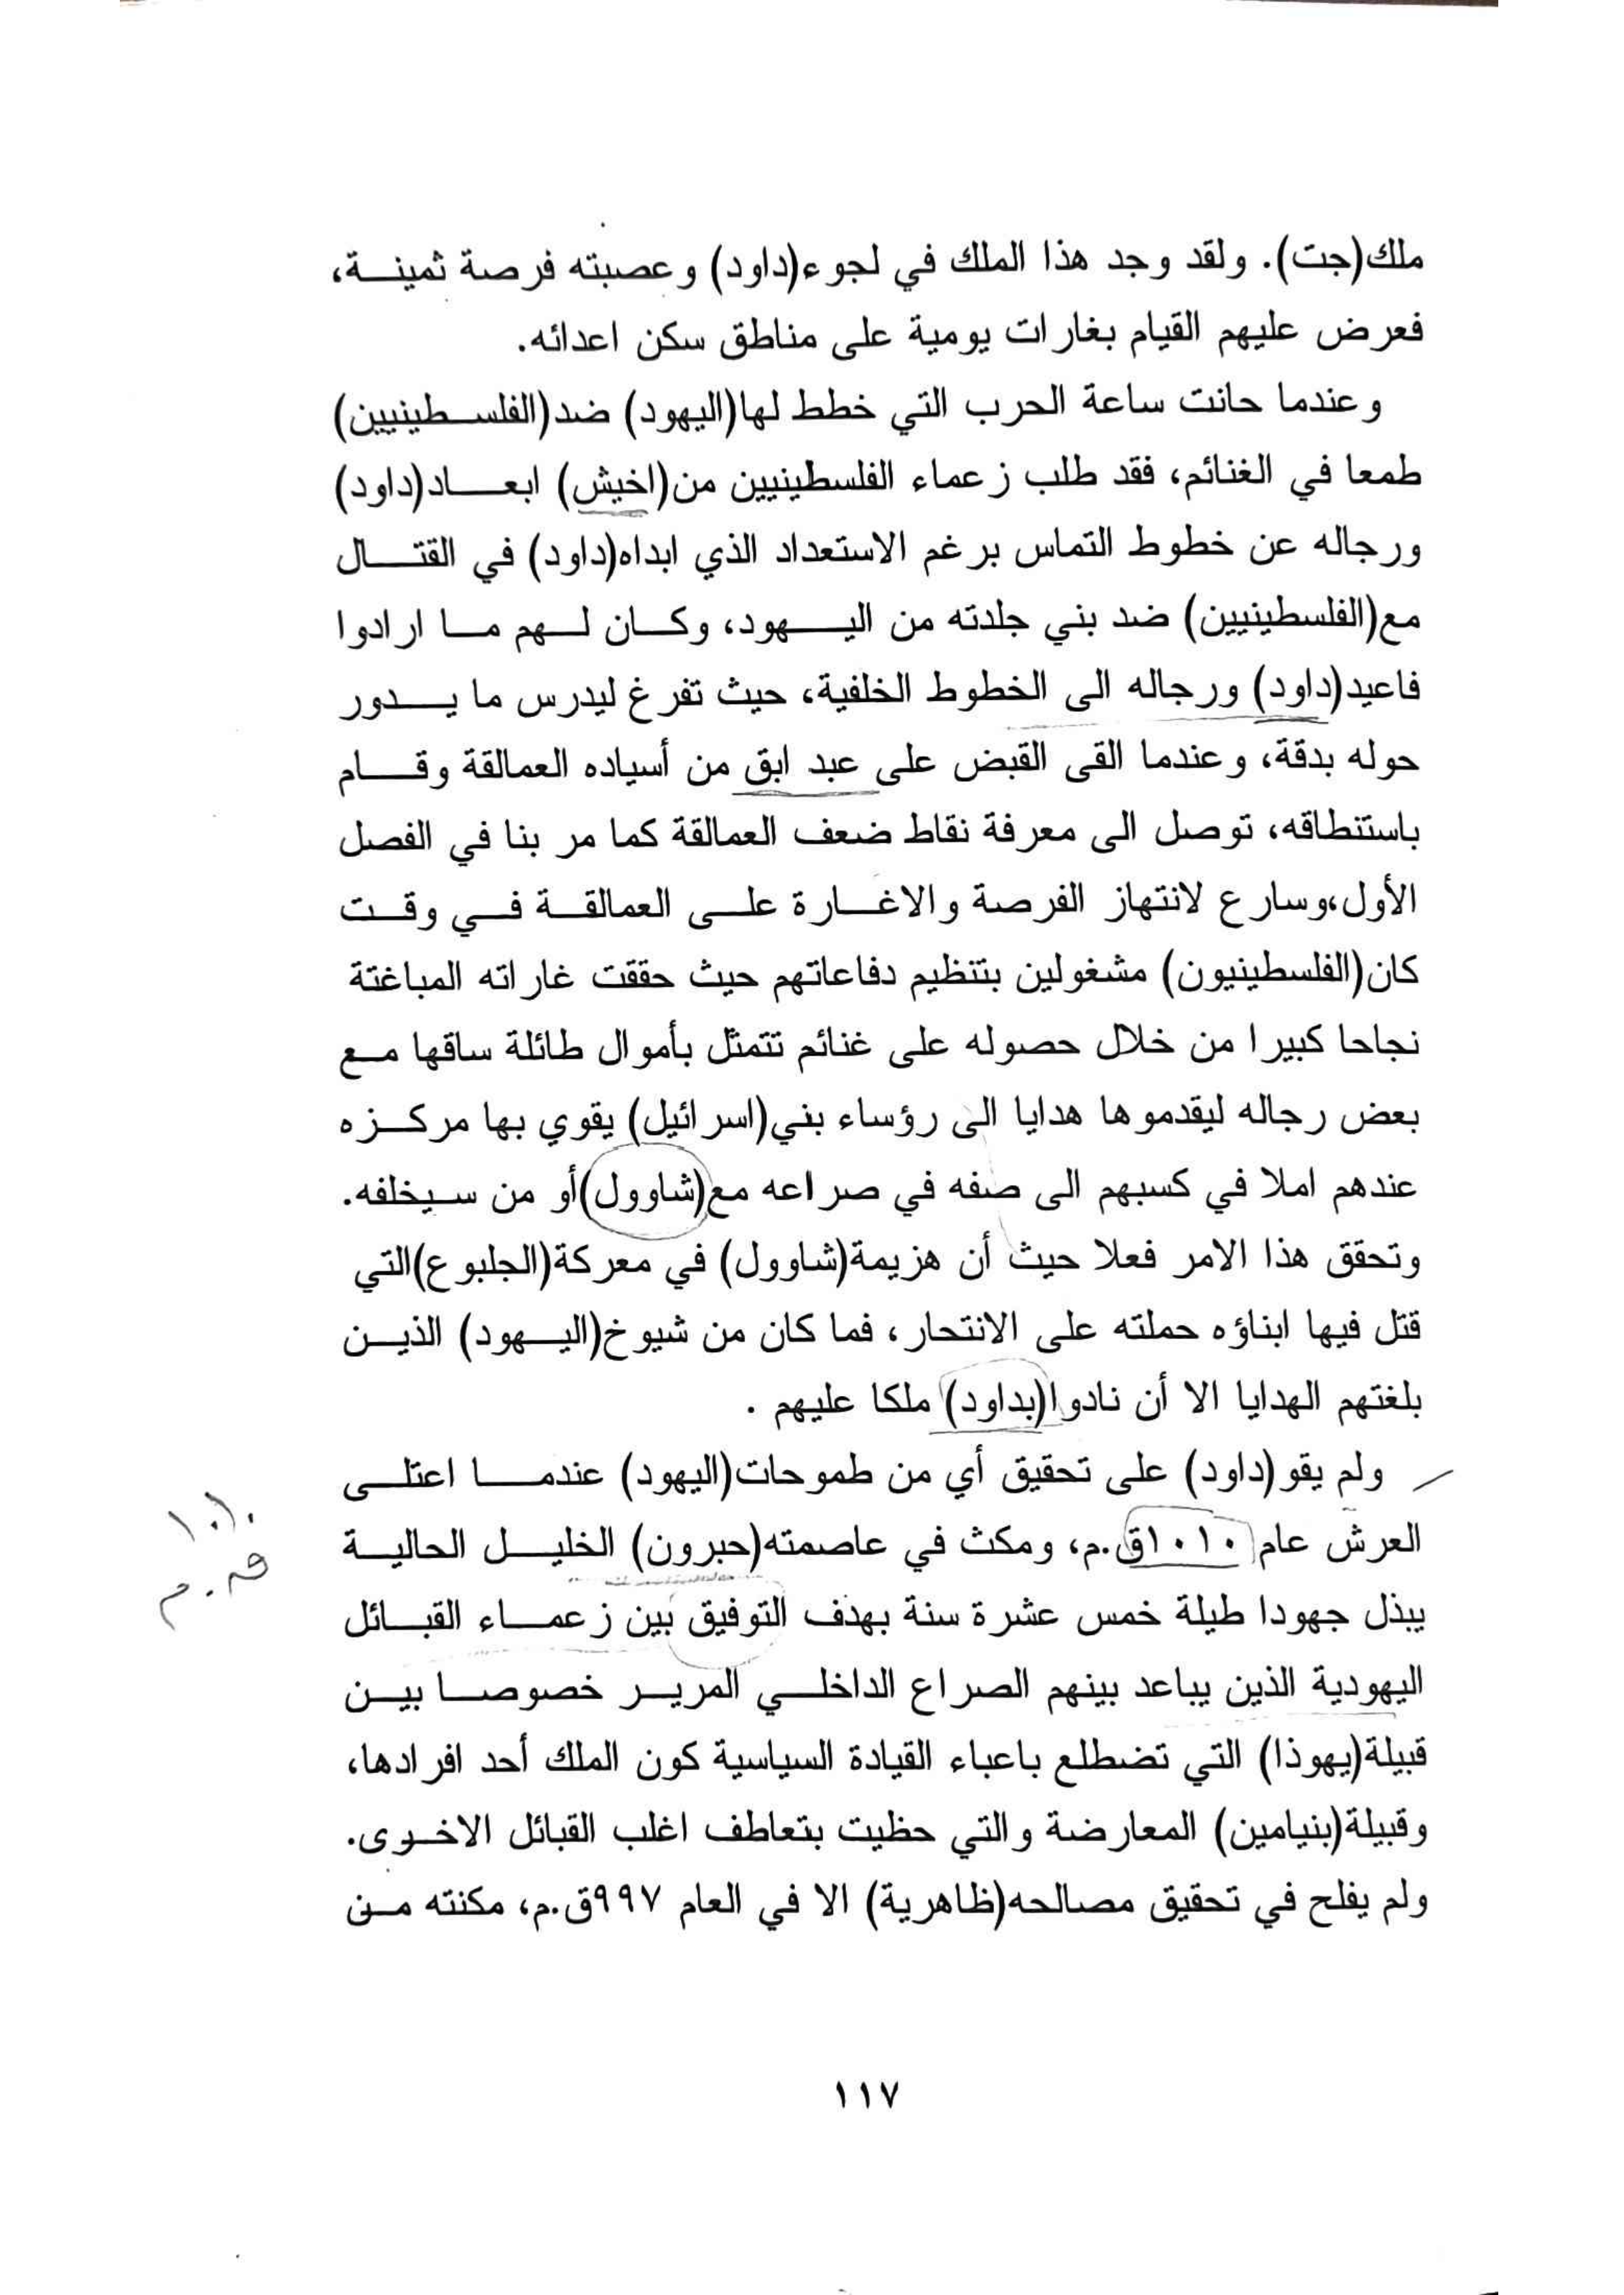 ملك(جت). ولقد وجد هذا الملك في لجوء(داود) وعصبته فرصة ثمينة،
فعرض عليهم القيام بغارات يومية على مناطق سكن اعدائه.
وعندما حانت ساعة الحرب التي خطط لها(اليهود) ضد(الفلسطينيين)
طمعا في الغنائم، فقد طلب زعماء الفلسطينيين من(اخيش) ابعاد(داود)
ورجاله عن خطوط التماس برغم الاستعداد الذي ابداه(داود) في القتال
مع(الفلسطينيين) ضد بني جلدته من اليهود، وكان لهم ما ارادوا
فاعيد(داود) ورجاله الى الخطوط الخلفية، حيث تفرغ ليدرس ما يدور
حوله بدقة، وعندما القى القبض على عبد ابق من أسياده العمالقة وقام
باستنطاقه، توصل الى معرفة نقاط ضعف العمالقة كما مر بنا في الفصل
الأول،وسارع لانتهاز الفرصة والاغارة على العمالقة في وقت
كان(الفلسطينيون) مشغولين بتنظيم دفاعاتهم حيث حققت غاراته المباغتة
نجاحا كبيرا من خلال حصوله على غنائم تتمثل بأموال طائلة ساقها مع
بعض رجاله ليقدموها هدايا الى رؤساء بني(اسرائيل) يقوي بها مركزه
عندهم املا في كسبهم الى صفه في صراعه مع(شاوول)أو من سيخلفه.
وتحقق هذا الامر فعلا حيث أن هزيمة(شاوول) في معركة(الجلبوع)التي
قتل فيها ابناؤه حملته على الانتحار، فما كان من شيوخ(اليهود) الذين
بلغتهم الهدايا الا أن نادوا(بداود) ملكا عليهم .
ولم يقو(داود) على تحقيق أي من طموحات(اليهود) عندما اعتلى
العرش عام ١٠١٠ق.م، ومكث في عاصمته(حبرون) الخليل الحالية
يبذل جهودا طيلة خمس عشرة سنة بهدف التوفيق بين زعماء القبائل
اليهودية الذين يباعد بينهم الصراع الداخلي المرير خصوصا بين
قبيلة(يهوذا) التي تضطلع باعباء القيادة السياسية كون الملك أحد افرادها،
وقبيلة(بنيامين) المعارضة والتي حظيت بتعاطف اغلب القبائل الاخرى.
ولم يفلح في تحقيق مصالحه(ظاهرية) الا في العام ٩٩٧ق.م، مكنته من
١٠١٠
ق.م
١١٧